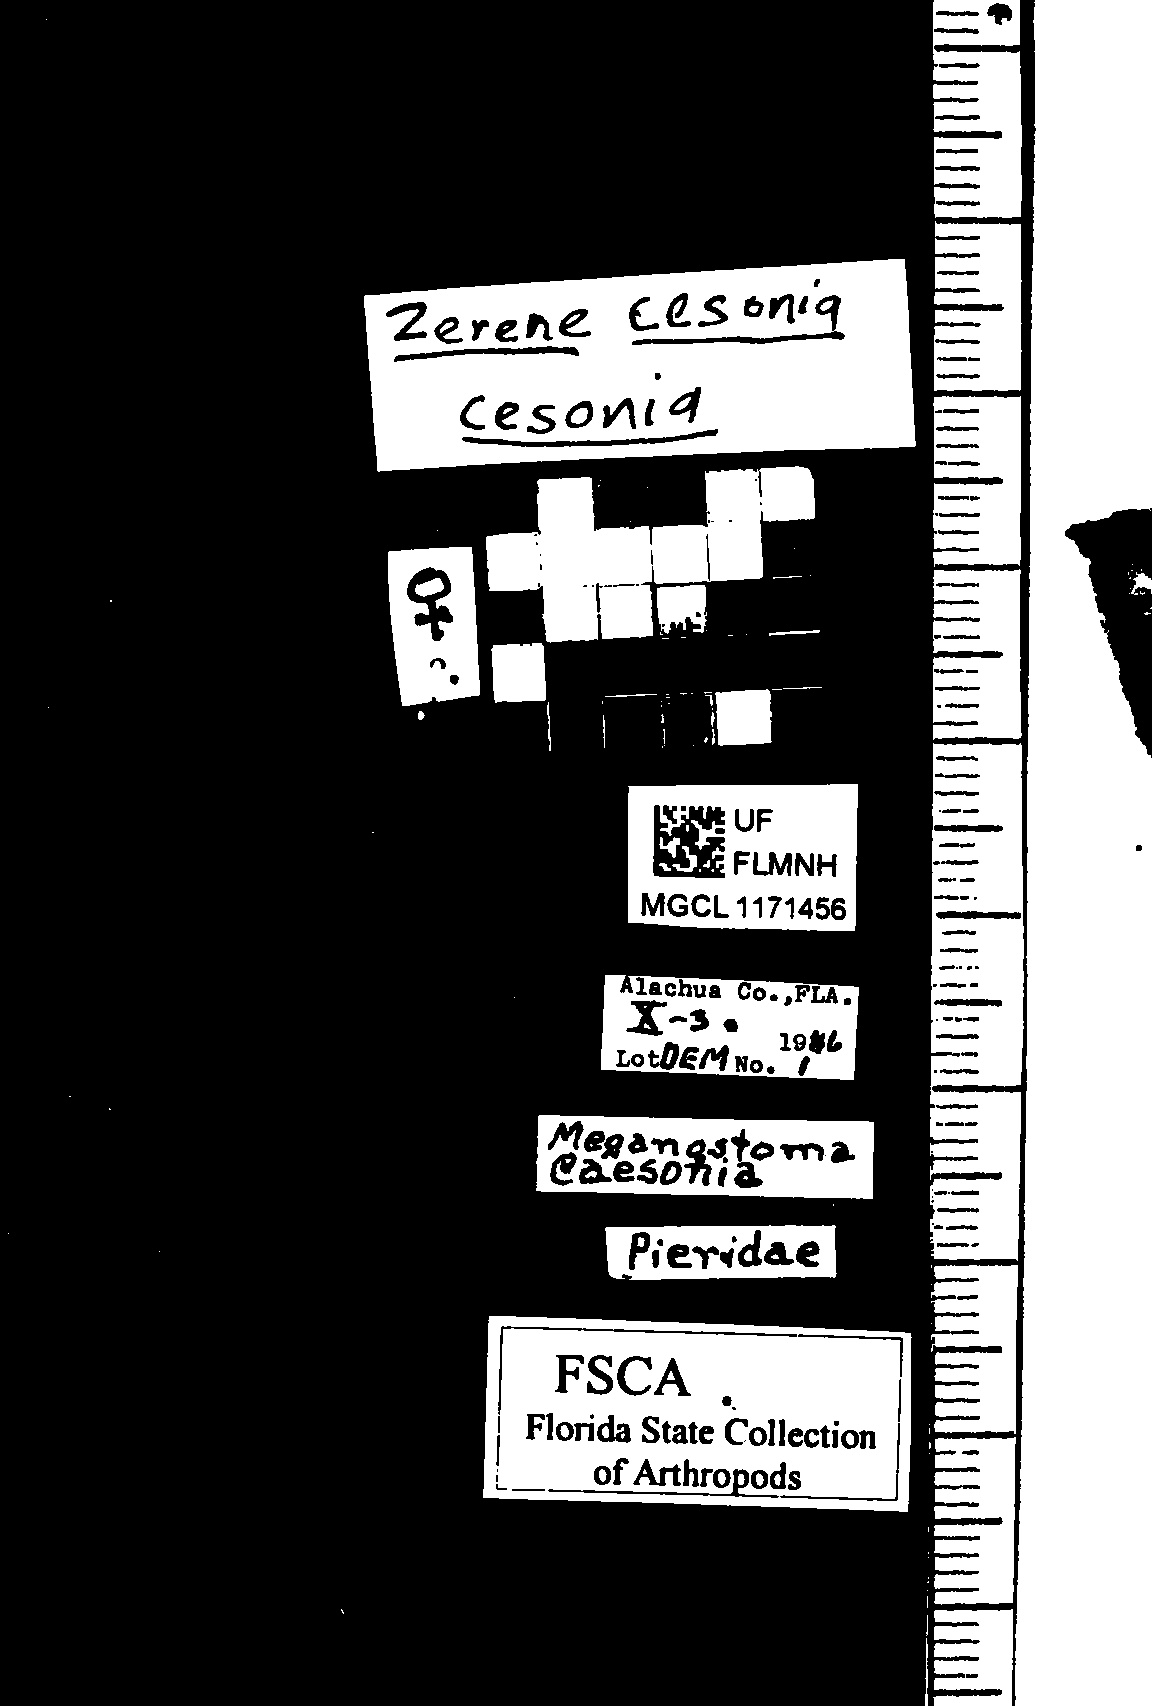 Zerene cesonia
cesonia
♀
UF
FLMNH
MGCL 1171456
Alachua Co., FLA.
X-3.
Lot DEM No. 1
Meganostoma
Caesonia
Pieridae
FSCA
Florida State Collection
of Arthropods